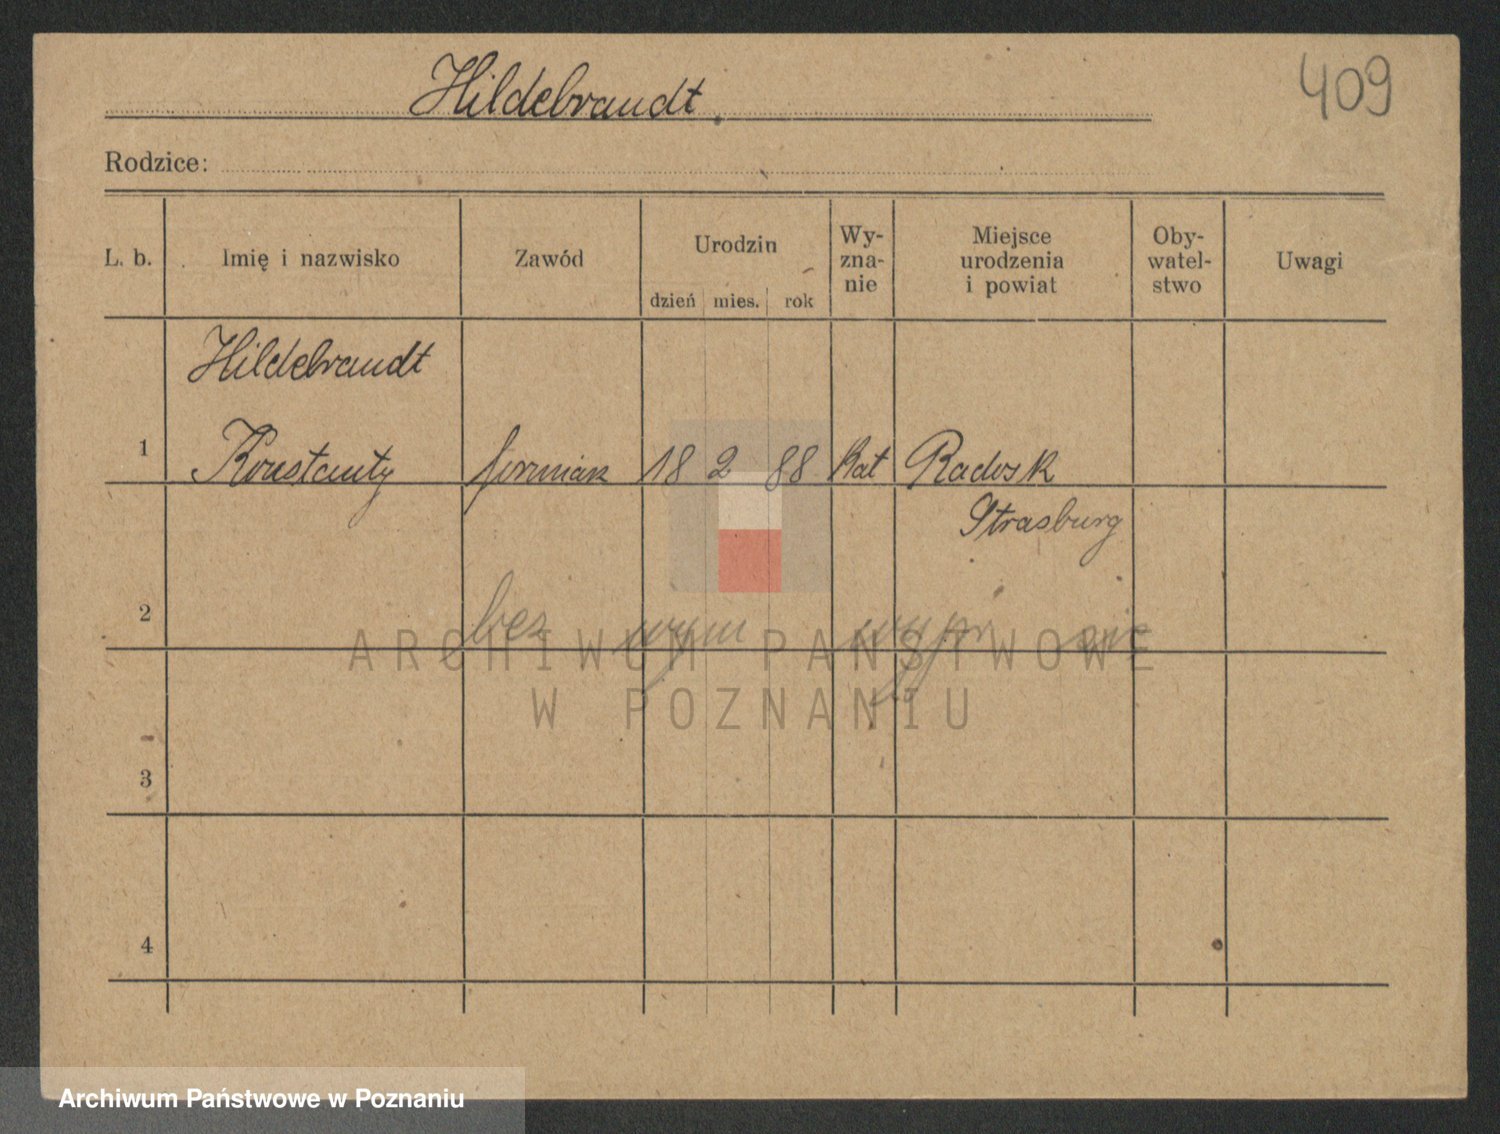 Hildebrandt.
409
Rodzice:
L. b. Imię i nazwisko Zawód Urodzin dzień mies. rok Wy-zna-nie Miejsce urodzenia i powiat Oby-watel-stwo Uwagi
Hildebrandt
1 Konstanty forman 18 2 88 kat Radosk
Strasburg
2 bez
ARCHIWUM PAŃSTWOWE
W POZNANIU
3
4
Archiwum Państwowe w Poznaniu